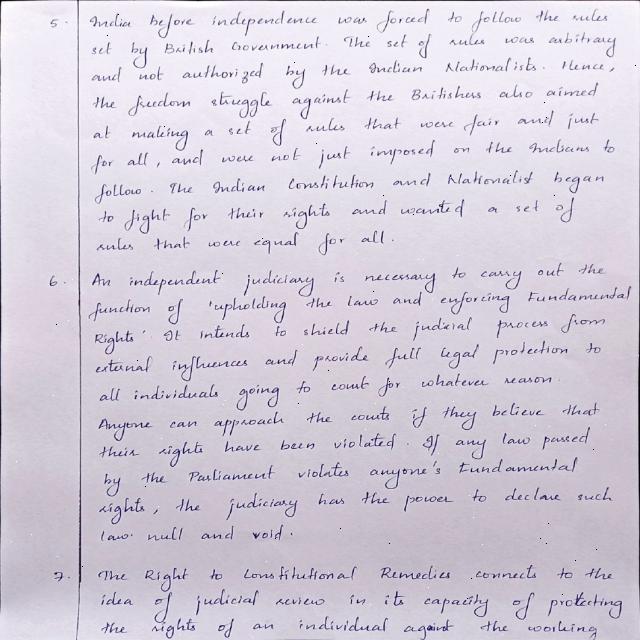 5. India before independence was forced to follow the rules
set by British Government. The set of rules was arbitrary
and not authorized by the Indian Nationalists. Hence,
the freedom struggle against the Britishers also aimed
at making a set of rules that were fair and just
for all, and were not just imposed on the Indians to
follow. The Indian Constitution and Nationalist began
to fight for their rights and wanted a set of
rules that were equal for all.
6. An independent judiciary is necessary to carry out the
function of 'upholding the law and enforcing Fundamental
Rights'. It intends to shield the judicial process from
external influences and provide full legal protection to
all individuals going to court for whatever reason.
Anyone can approach the courts if they believe that
their rights have been violated. If any law passed
by the Parliament violates anyone's Fundamental
rights, the judiciary has the power to declare such
law null and void.
7. The Right to Constitutional Remedies connects to the
idea of judicial review in its capacity of protecting
the rights of an individual against the working